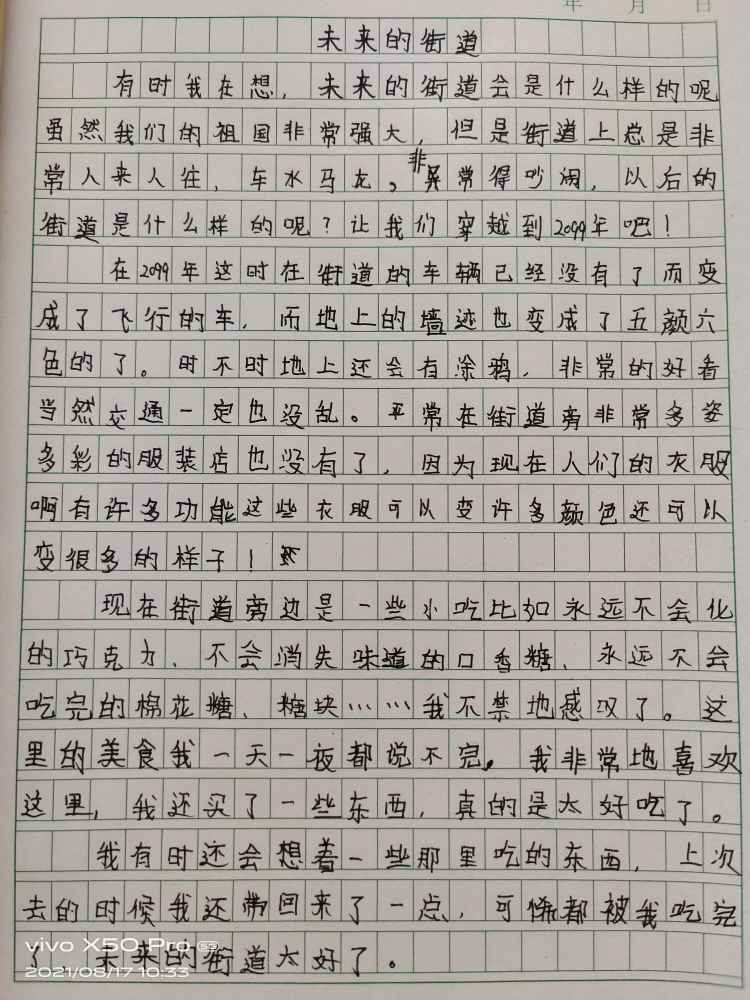 年 月 日
未来的街道
有时我在想，未来的街道会是什么样的呢
虽然我们的祖国非常强大，但是街道上总是非
常人来人往，车水马龙，非常得吵闹，以后的
街道是什么样的呢？让我们穿越到2099年吧！
在2099年这时在街道的车辆已经没有了而变
成了飞行的车，而地上的墙迹也变成了五颜六
色的了。时不时地上还会有涂鸦，非常的好看
当然交通一定也没乱。平常在街道旁非常多姿
多彩的服装店也没有了，因为现在人们的衣服
啊有许多功能这些衣服可以变许多颜色还可以
变很多的样子！
现在街道旁边是一些小吃比如永远不会化
的巧克力、不会消失味道的口香糖、永远不会
吃完的棉花糖、糖块……我不禁地感叹了。这
里的美食我一天一夜都说不完，我非常地喜欢
这里，我还买了一些东西，真的是太好吃了。
我有时还会想着一些那里吃的东西，上次
去的时候我还带回来了一点，可惜都被我吃完
了 未来的街道太好了。
vivo X50 Pro 5G
2021/08/17 10:33